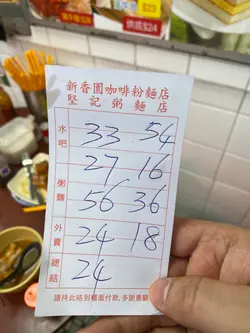 $23
$24
新香園咖啡粉麵店
堅記粥麵店
水吧 33 54
27 16
粥麵 56 36
外賣 24 18
總結 24
請持此咭到櫃面付款，多謝惠顧